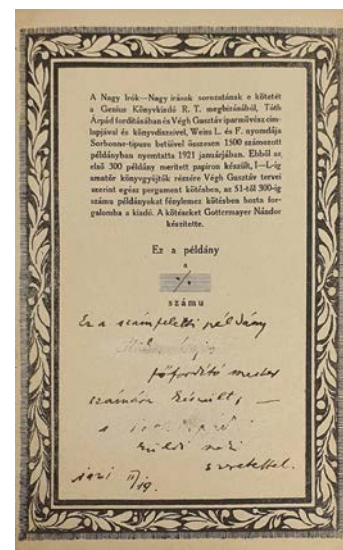 A Nagy Irók—Nagy irások sorozatának e kötetét
a Genius Könyvkiadó R. T. megbizásából, Tóth
Árpád forditásában és Végh Gusztáv iparmüvész cim-
lapjával és könyvdiszeivel, Weiss L. és F. nyomdája
Sorbonne-tipusu betüivel összesen 1500 számozott
példányban nyomtatta 1921 januárjában. Ebből az
első 300 példány meritett papiron készült, I—L-ig
amatőr könyvgyüjtők részére Végh Gusztáv tervei
szerint egész pergament kötésben, az 51-től 300-ig
számu példányokat fénylemez kötésben hozta for-
galomba a kiadó. A kötéseket Gottermayer Nándor
készitette.
Ez a példány
a
./.
számu
Ez a számfeletti példány
főfordító mester
számára készült, —
a
küldi neki
szeretettel.
1921 II/19.